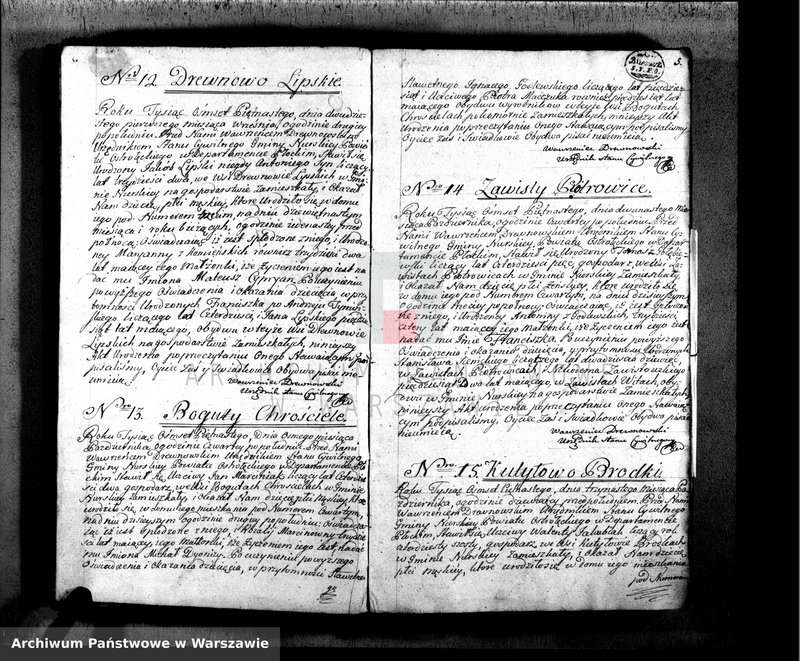 Nro 12 Drewnowo Lipskie
Roku Tysiąc Ośmset Piętnastego, dnia dwudzie-
stego pierwszego miesiąca września, o godzinie drugiey
popołudniu. Przed Nami Wawrzeńcem Drewnowskim
Urzędnikiem Stanu Cywilnego Gminy Nurskiey Powia-
tu Ostrołęckiego w Departamencie Płockim, Stawił się
Urodzony Jakób Lipski niegdy Antoniego Syn liczący
lat trzydzieści dwa, we wsi Drewnowie Lipskich w Gmi-
nie Nurskiey na gospodarstwie zamieszkały, i okazał
Nam dziecię, płci męskiey, które urodziło się w domu
iego pod Numerem na dniu dziewiętnastym
miesiąca i roku bieżących, o godzinie przed
północą: Oświadczaiąc iż iest spłodzone z niego, i Urodzo-
ney Maryanny z Kamińskich również trzydzieści dwa
lat maiącey iego Małżonki, iż życzeniem iego iest na-
dać mu Imiona Mateusz Cypryan. Po uczynieniu
powyższego Oświadczenia i okazaniu dziecięcia, w przy-
tomności Urodzonych Franciszka po Andrzeiu
skiego liczącego lat Czterdzieści, i Jana Lipskiego pięćdzie-
siąt lat maiącego, obydwa w teyże wsi Drewnowie
Lipskich na gospodarstwie zamieszkałych, ninieyszy
Akt Urodzenia po przeczytaniu Onego Stawaiącym pod-
pisaliśmy, Oyciec zaś i Świadkowie Obydwa pisać nie-
umieią.
Wawrzeniec Drewnowski
Urzędnik Stanu Cywilnego
Nro 13. Boguty Chrościele.
Roku Tysiąc Ośmset Piętnastego, Dnia Osmego miesiąca
Października, o godzinie Czwartey popołudniu. Przed Nami
Wawrzeńcem Drewnowskim Urzędnikiem Stanu Cywilnego
Gminy Nurskiey Powiatu Ostrołęckiego w Departamencie Pło-
ckim Stawił się Uczciwy Jan Marciniak liczący lat Czterdzie-
ści dwa gospodarz, we wsi Bogutach Chrościelach w Gminie
Nurskiey Zamieszkały, i okazał Nam dziecię płci męskiey które
urodziło się, w domu iego mieszkania pod Numerem Czwartym,
na dniu dzisieyszym o godzinie drugiey popołudniu: Oświadcza-
iąc iż iest spłodzone z niego, i Maryanny Marcinowey trzydzie-
ści lat maiącey, iego Małżonki, iż życzeniem iego iest, nadać
mu Imiona Michał Dyonizy. Po uczynieniu powyższego
Oświadczenia i okazaniu dziecięcia, w przytomności Sławetn-
5.
Sławetnego Ignacego Godlewskiego liczącego lat pięćdzie-
siąt i Uczciwego Piotra również pięćdziesiąt lat
maiącego Obydwu wyrobników w teyże wsi Bogutach
Chrościelach pokomornie zamieszkałych, ninieyszy Akt
Urodzenia po przeczytaniu Onego Stawaiącym podpisaliśmy
Oyciec zaś i Świadkowie Obydwa pisać nieumieią.
Wawrzeniec Drewnowski
Urzędnik Stanu Cywilnego
Nro 14 Zawisty Piotrowice.
Roku Tysiąc Ośmset Piętnastego, dnia dwunastego mie-
siąca Października, o godzinie Czwartey popołudniu. Przed
Nami Wawrzeńcem Drewnowskim Urzędnikiem Stanu Cy-
wilnego Gminy Nurskiey Powiatu Ostrołęckiego w Depar-
tamencie Płockim, Stawił się Urodzony Tomasz
liczący lat Czterdzieści pięć, gospodarz we wsi Za-
wistach Piotrowicach w Gminie Nurskiey Zamieszkały
i okazał Nam dziecię płci żeńskiey, które urodziło się
w domu iego pod Numerem Czwartym, na dniu dzisieyszym
o godzinie trzeciey po północy: Oświadczaiąc, iż iest spłodzo-
ne z niego, i Urodzoney Antoniny z Godlewskich, trzydzieści
cztery lat maiącey iego Małżonki, iż życzeniem iego iest
nadać mu Imie Franciszka. Po uczynieniu powyższego
Oświadczenia i okazaniu dziecięcia, w przytomności Urodzonych
Stanisława Sienickiego liczącego lat dwadzieścia dziewięć,
w Zawistach Piotrowicach, i Zawistowskiego
pięćdziesiąt Dwa lat maiącego, w Zawistach Witach, oby-
dwu w Gminie Nurskiey na gospodarstwie Zamieszkałych,
ninieyszy Akt Urodzenia po przeczytaniu Onego Stawaią-
cym podpisaliśmy, Oyciec zaś i Świadkowie Obydwa pisać
nieumieią.
Wawrzeniec Drewnowski
Urzędnik Stanu Cywilnego
Nro 15. Kutyłowo Brodki
Roku Tysiąc Ośmset Piętnastego, dnia trzynastego miesiąca Paź-
dziernika, o godzinie dziewiątey przed południem. Przed Nami
Wawrzeńcem Drewnowskim Urzędnikiem Stanu Cywilnego
Gminy Nurskiey Powiatu Ostrołęckiego w Departamencie
Płockim, Stawił się Uczciwy Walenty liczący rok
czterdziesty szosty, gospodarz we wsi Kutyłowie Brodkach
w Gminie Nurskiey Zamieszkały, i okazał Nam dziecię
płci męskiey, które urodziło się w domu iego mieszkania
pod Numerem
Archiwum Państwowe w Warszawie